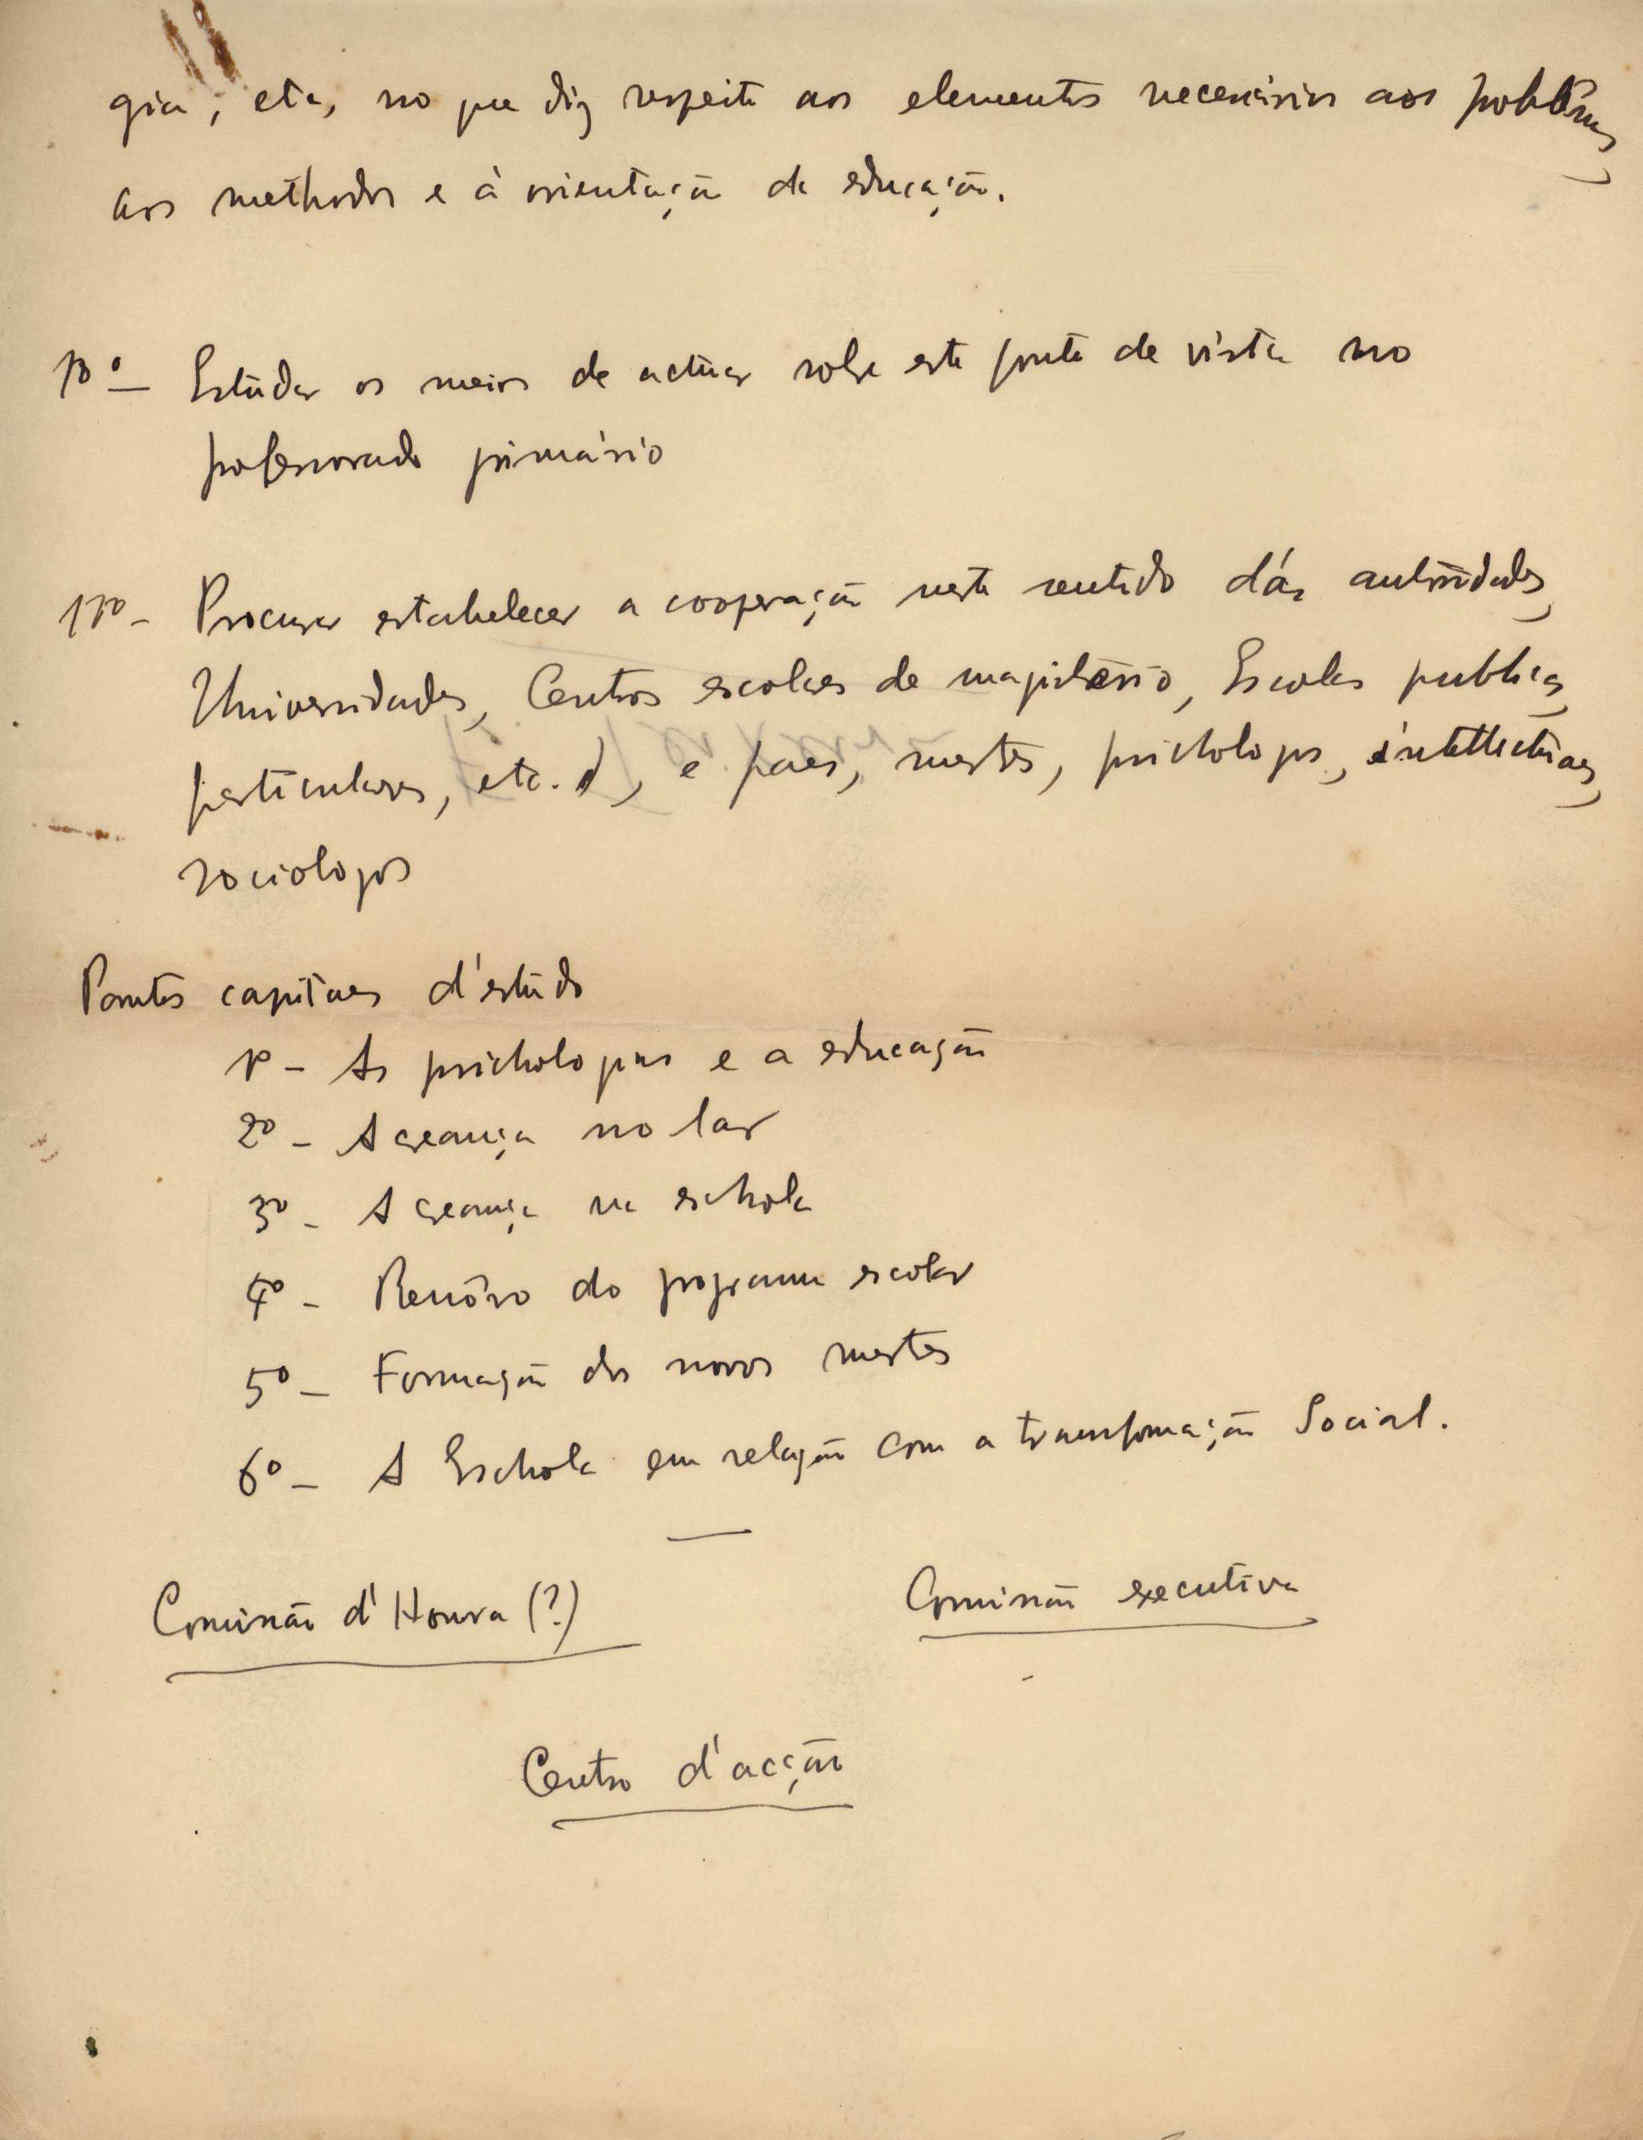 gia, etc, no que diz respeito aos elementos necessários aos problemas,
aos methodos e á orientação da educação.
10º — Estudar os meios de actuar sobre este ponto de vista no
professorado primário
11º - Procurar estabelecer a cooperação neste sentido dás autoridades,
Universidades, Centros escolares de magistério, Escolas publicas,
particulares, etc. , e paes, mestres, psichologos, intellectuaes,
sociologos
Pontos capitaes d'estudo
1º - As psichologias e a educação
2º - A creança no lar
3º - A creança na eschola
4º - Renôvo do programa escolar
5º - Formação dos novos mestres
6º - A Eschola em relação com a transformação Social.
Comissão d'Honra (?)
Comissão executiva
Centro d'acção